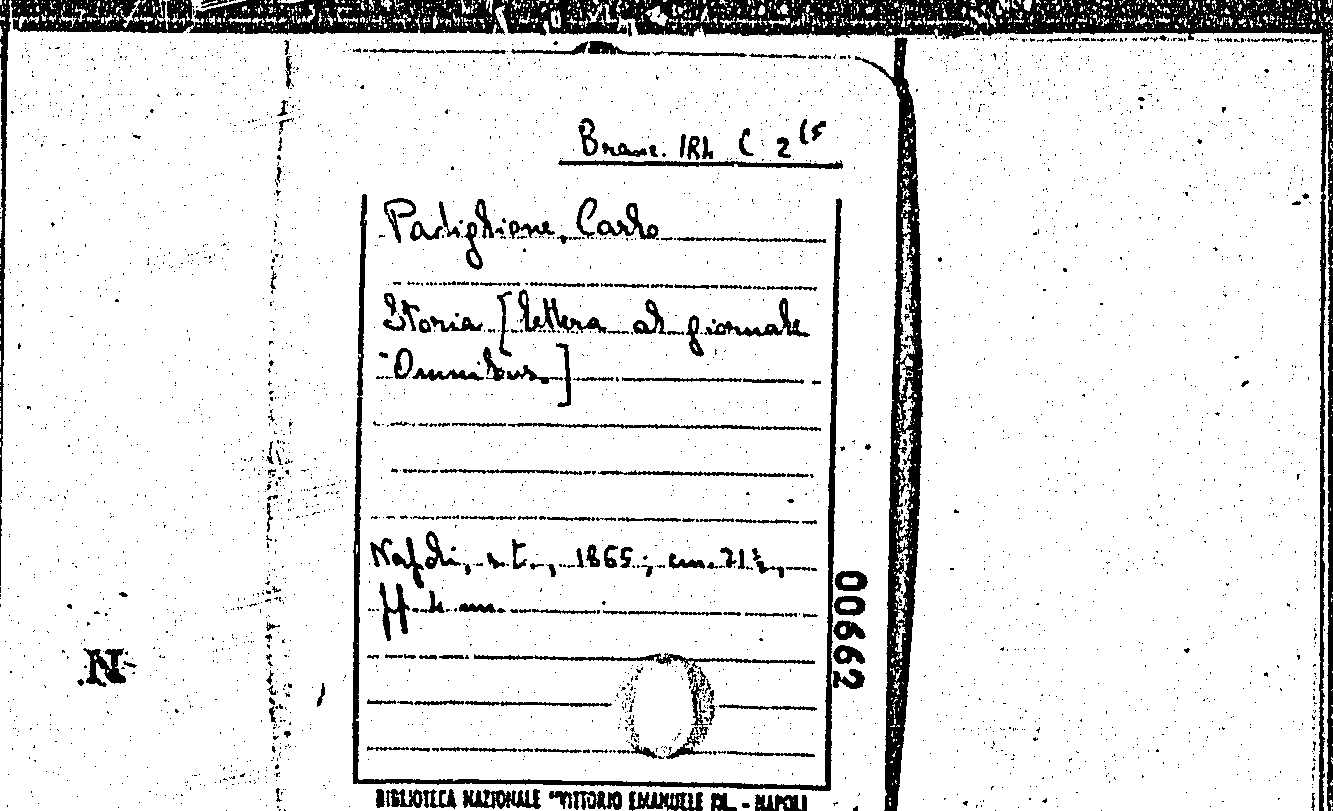 Branc. 182 C 2 (5
Padiglione, Carlo
Storia [lettera al giornale
"Omnibus.]
Napoli, s.t., 1865; cm. 21½,
pp. 4 nn.
00662
N
BIBLIOTECA NAZIONALE "VITTORIO EMANUELE III„ - NAPOLI